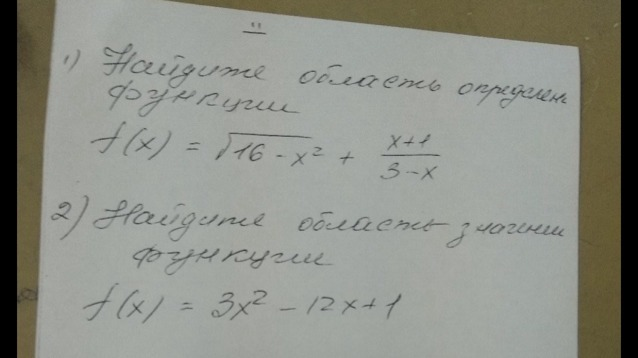 "
1) Найдите область определен
функции
f(x) = √16 - x² + x+1/3-x
2) Найдите область значений
функции
f(x) = 3x² - 12x+1